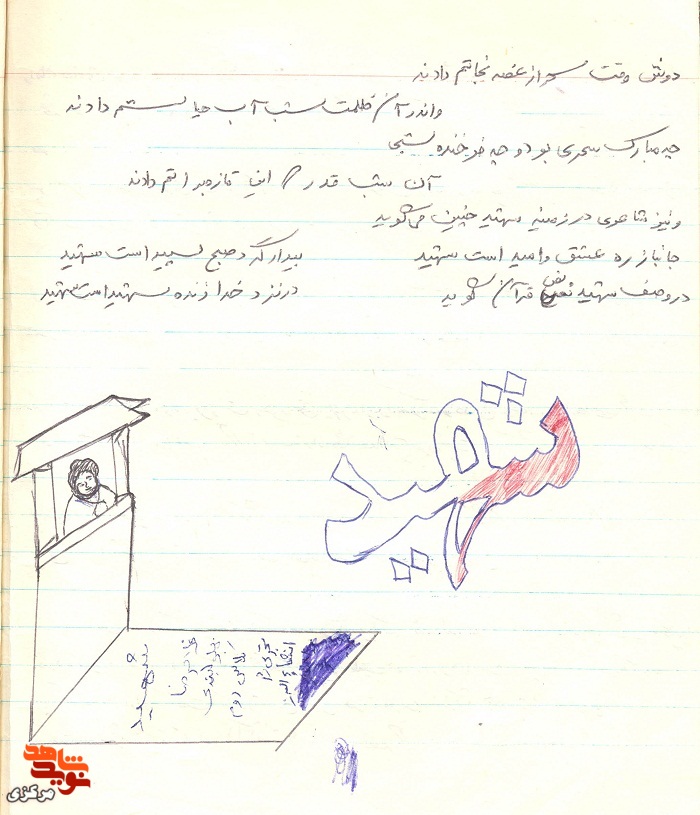 دوش وقت سحر از غصه نجاتم دادند
واندر آن ظلمت شب آب حیاتم دادند
چه مبارک سحری بود و چه فرخنده شبی
آن شب قدر که این تازه براتم دادند
ونیز شاعری در زمینه شهید چنین می گوید
جانباز ره عشق وامید است شهید بیدارگر صبح سپید است شهید
در وصف شهید نص قرآن گوید در نزد خدا زنده شهید است شهید
شهید
شهید
غلامرضا
کلاس دوم
شاهد
نوید
مرکزی